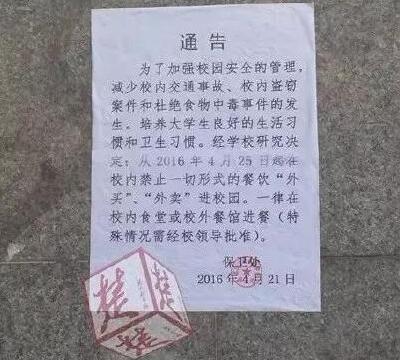 通告
为了加强校园安全的管理，
减少校内交通事故、校内盗窃
案件和杜绝食物中毒事件的发
生。培养大学生良好的生活习
惯和卫生习惯。经学校研究决
定：从2016年4月25日起在
校内禁止一切形式的餐饮“外
买”、“外卖”进校园。一律在
校内食堂或校外餐馆进餐（特
殊情况需经校领导批准）。
保卫处
2016年4月21日